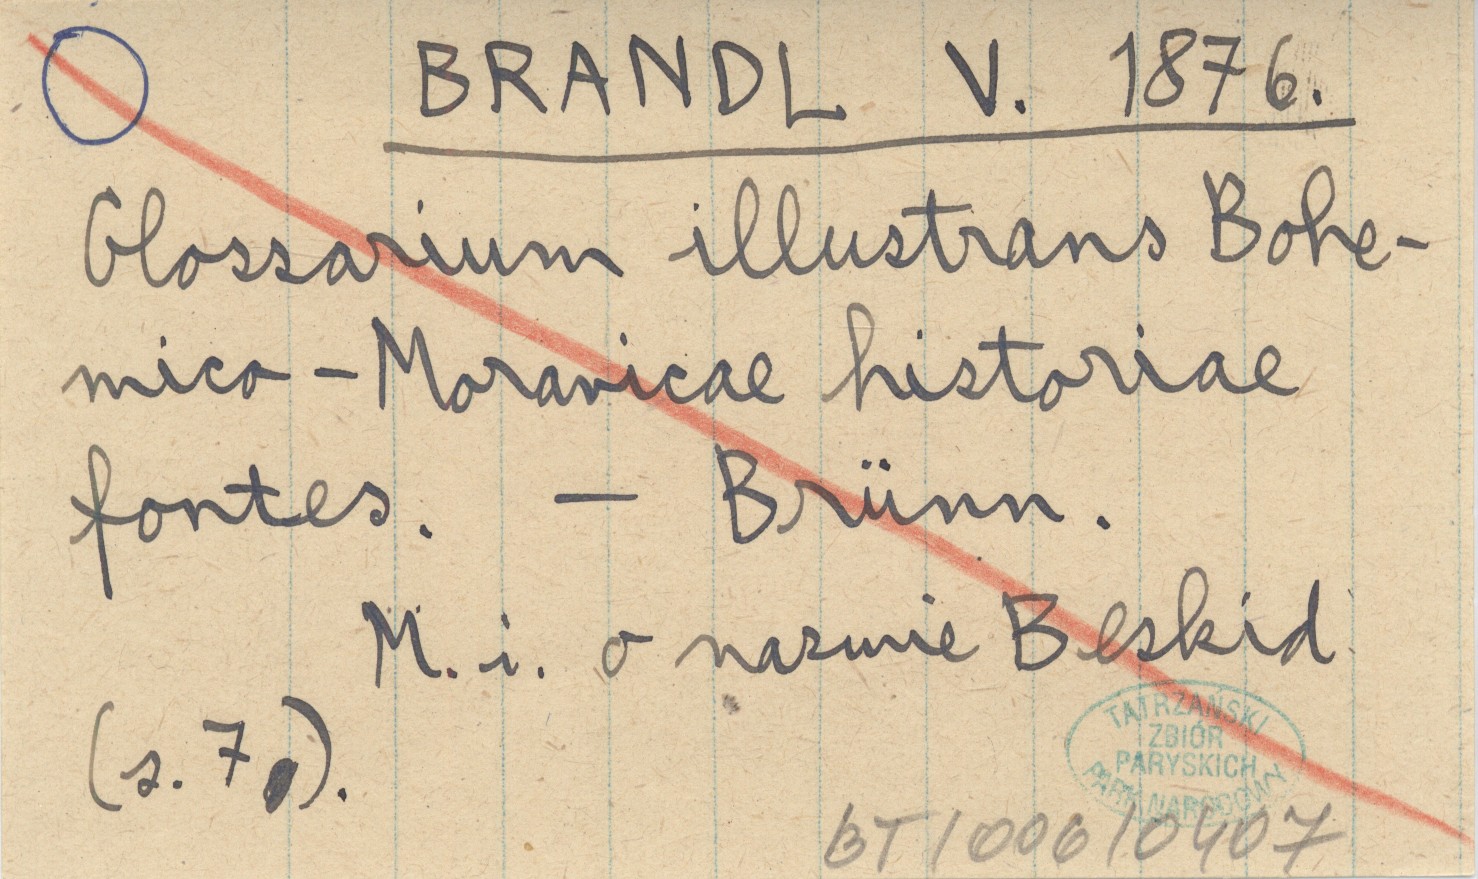 BRANDL V. 1876.
Glossarium illustrans Bohe-
mico-Moravicae historiae
fontes. — Brünn.
M. i. o nazwie Beskid
(s. 7).
TATRZAŃSKI
ZBIÓR
PARYSKICH
PARK NARODOWY
BT/006/0407